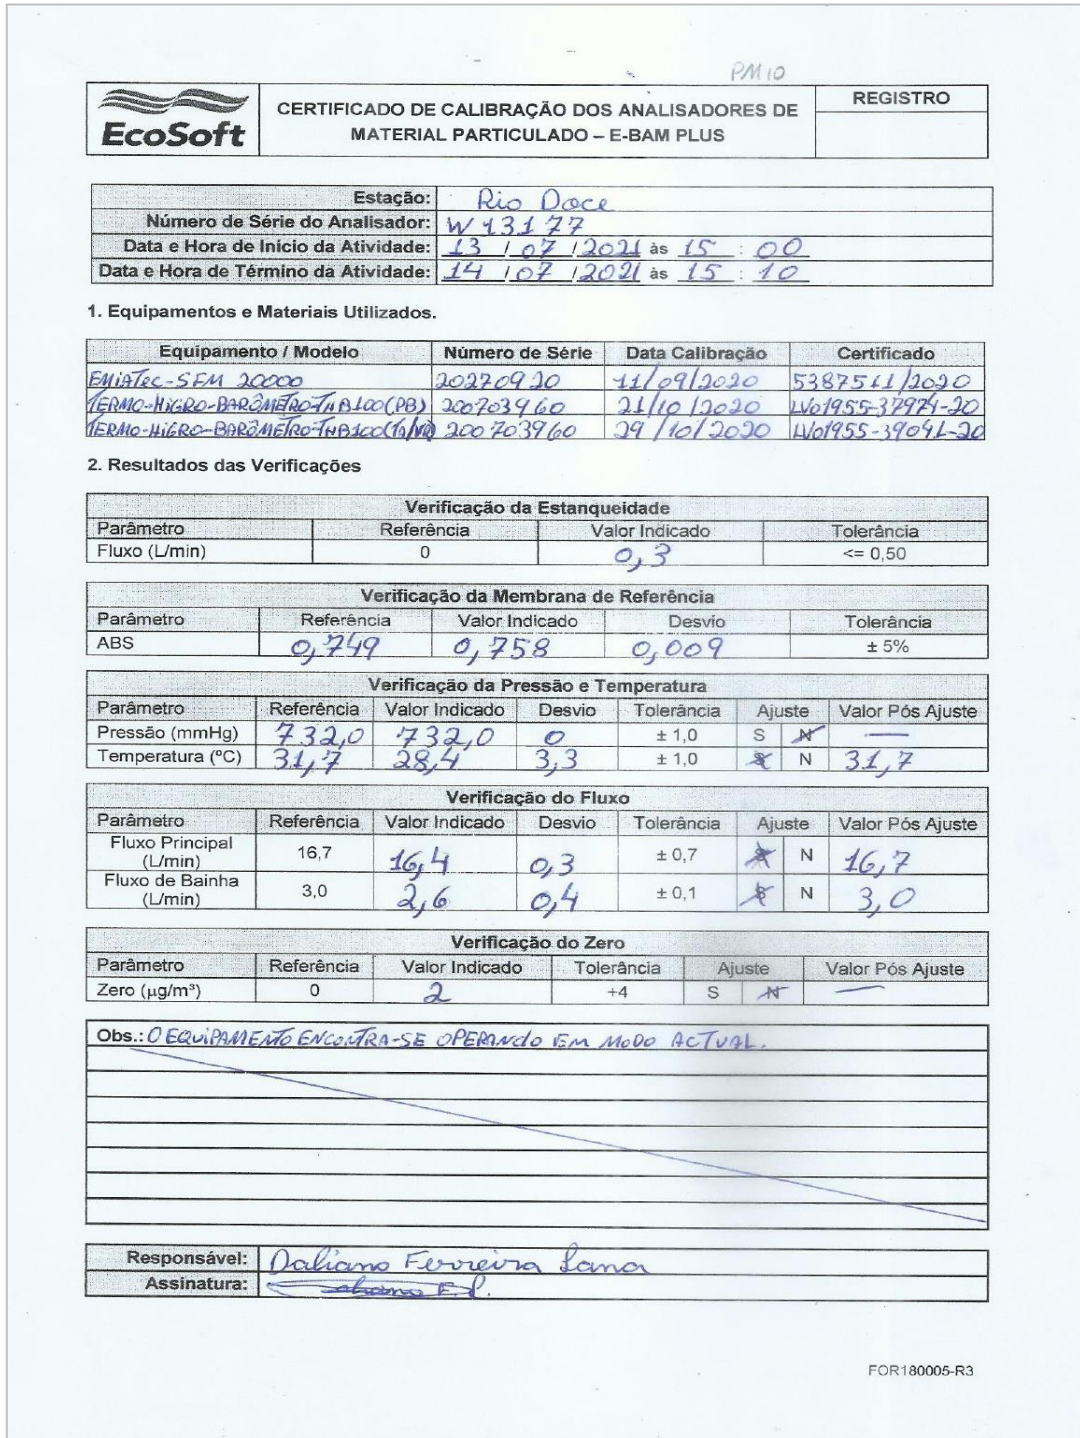 PM10
EcoSoft
CERTIFICADO DE CALIBRAÇÃO DOS ANALISADORES DE
MATERIAL PARTICULADO – E-BAM PLUS
REGISTRO
Estação: Rio Doce
Número de Série do Analisador: W13177
Data e Hora de Início da Atividade: 13 / 07 / 2021 às 15 : 00
Data e Hora de Término da Atividade: 14 / 07 / 2021 às 15 : 10
1. Equipamentos e Materiais Utilizados.
Equipamento / Modelo Número de Série Data Calibração Certificado
EMiATEC-SFM 20000 20270920 11/09/2020 5387511/2020
TERMO-HiGRO-BARÔMETRO-THB100(PB) 200703960 21/10/2020 LV01955-37974-20
TERMO-HiGRO-BARÔMETRO-THB100 200703960 29/10/2020 LV01955-39041-20
2. Resultados das Verificações
Verificação da Estanqueidade
Parâmetro Referência Valor Indicado Tolerância
Fluxo (L/min) 0 0,3 <= 0,50
Verificação da Membrana de Referência
Parâmetro Referência Valor Indicado Desvio Tolerância
ABS 0,749 0,758 0,009 ± 5%
Verificação da Pressão e Temperatura
Parâmetro Referência Valor Indicado Desvio Tolerância Ajuste Valor Pós Ajuste
Pressão (mmHg) 732,0 732,0 0 ± 1,0 S N —
Temperatura (ºC) 31,7 28,4 3,3 ± 1,0 S N 31,7
Verificação do Fluxo
Parâmetro Referência Valor Indicado Desvio Tolerância Ajuste Valor Pós Ajuste
Fluxo Principal
(L/min) 16,7 16,4 0,3 ± 0,7 S N 16,7
Fluxo de Bainha
(L/min) 3,0 2,6 0,4 ± 0,1 S N 3,0
Verificação do Zero
Parâmetro Referência Valor Indicado Tolerância Ajuste Valor Pós Ajuste
Zero (µg/m³) 0 2 +4 S N —
Obs.: O EQUiPAMENTO ENCONTRA-SE OPERANDO EM MODO ACTUAL.
Responsável: Daliano Ferreira Lana
Assinatura:
FOR180005-R3